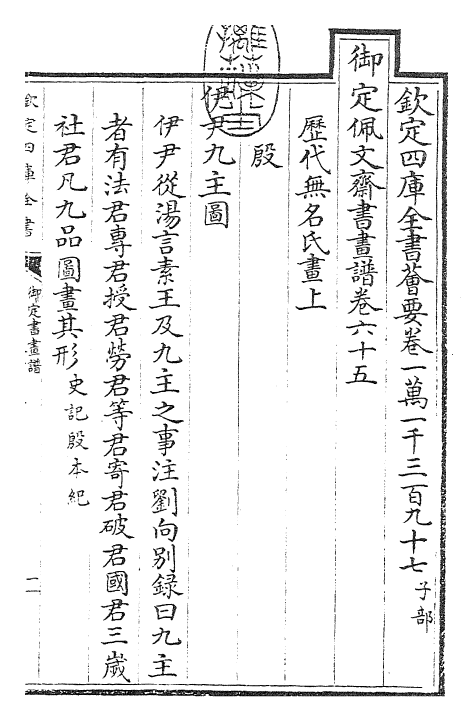 欽定四庫全書薈要卷一萬一千三百九十七 子部
御定佩文齋書畫譜卷六十五
歷代無名氏畫上
殷
伊尹九主圖
伊尹從湯言素王及九主之事注劉向別録曰九主
者有法君專君授君勞君等君寄君破君國君三嵗
社君凡九品圖畫其形 史記殷本紀
欽定四庫全書
御定書畫譜
一